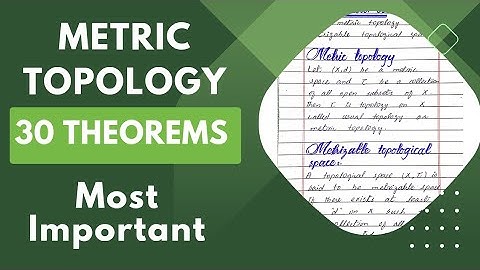 METRIC
TOPOLOGY
30 THEOREMS
Most
Important
metric topology
topological space
Metric topology
Let (X,d) be a metric
space and τ be a collection
of all open subsets of X
then τ is topology on X
called usual topology or
metric topology.
Metrizable topological
space:
A topological space (X,τ) is
said to be metrizable space
if there exists at least
'd' on X such
collection of all